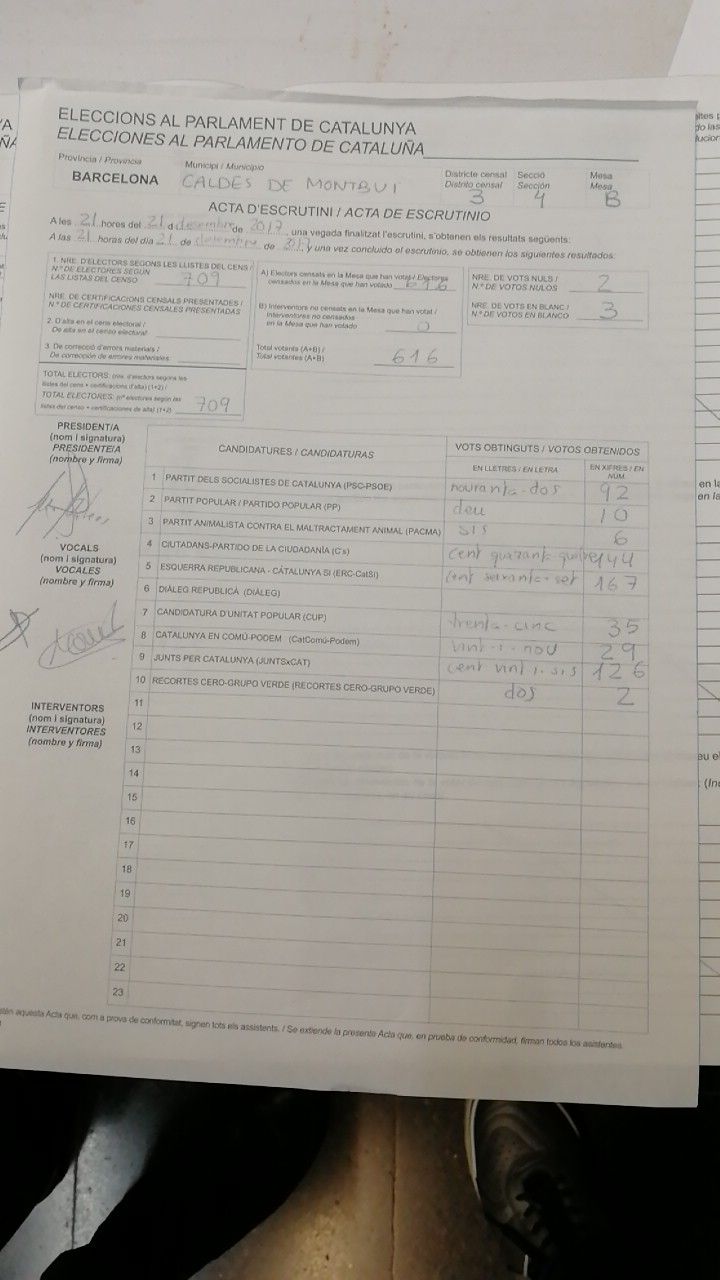 ELECCIONS AL PARLAMENT DE CATALUNYA
ELECCIONES AL PARLAMENTO DE CATALUÑA
Província / Provincia Municipi / Municipio Districte censal Secció Mesa
BARCELONA CALDES DE MONTBUI Distrito censal Sección Mesa
3 4 B
ACTA D'ESCRUTINI / ACTA DE ESCRUTINIO
A les 21 hores del 21 d desembre de 2017, una vegada finalitzat l'escrutini, s'obtenen els resultats següents:
A las 21 horas del día 21 de de 2017 y una vez concluido el escrutinio, se obtienen los siguientes resultados:
1. NRE. D'ELECTORS SEGONS LES LLISTES DEL CENS /
N.º DE ELECTORES SEGÚN
LAS LISTAS DEL CENSO 709
NRE. DE CERTIFICACIONS CENSALS PRESENTADES /
N.º DE CERTIFICACIONES CENSALES PRESENTADAS
2. D'alta en el cens electoral /
De alta en el censo electoral
3. De correcció d'errors materials /
De corrección de errores materiales
TOTAL ELECTORS: (nre. d'electors segons les
llistes del cens + certificacions d'alta) (1+2) /
TOTAL ELECTORES: (nº electores según las
listas del censo + certificaciones de alta) (1+2) 709
A) Electors censats en la Mesa que han votat / Electores
censados en la Mesa que han votado 616
B) Interventors no censats en la Mesa que han votat /
Interventores no censados
en la Mesa que han votado 0
Total votants (A+B) /
Total votantes (A+B) 616
NRE. DE VOTS NULS /
N.º DE VOTOS NULOS 2
NRE. DE VOTS EN BLANC /
N.º DE VOTOS EN BLANCO 3
PRESIDENT/A
(nom i signatura)
PRESIDENTE/A
(nombre y firma)
VOCALS
(nom i signatura)
VOCALES
(nombre y firma)
INTERVENTORS
(nom i signatura)
INTERVENTORES
(nombre y firma)
CANDIDATURES / CANDIDATURAS VOTS OBTINGUTS / VOTOS OBTENIDOS
EN LLETRES / EN LETRA EN XIFRES / EN NÚM.
1 PARTIT DELS SOCIALISTES DE CATALUNYA (PSC-PSOE) nouranta-dos 92
2 PARTIT POPULAR / PARTIDO POPULAR (PP) deu 10
3 PARTIT ANIMALISTA CONTRA EL MALTRACTAMENT ANIMAL (PACMA) sis 6
4 CIUTADANS-PARTIDO DE LA CIUDADANÍA (C's) cent quaranta-quatre 144
5 ESQUERRA REPUBLICANA - CATALUNYA SÍ (ERC-CatSí) cent seixanta-set 167
6 DIÀLEG REPUBLICÀ (DIÀLEG)
7 CANDIDATURA D'UNITAT POPULAR (CUP) trenta-cinc 35
8 CATALUNYA EN COMÚ-PODEM (CatComú-Podem) vint-i-nou 29
9 JUNTS PER CATALUNYA (JUNTSxCAT) cent vint-i-sis 126
10 RECORTES CERO-GRUPO VERDE (RECORTES CERO-GRUPO VERDE) dos 2
11
12
13
14
15
16
17
18
19
20
21
22
23
aquesta Acta que, com a prova de conformitat, signen tots els assistents. / Se extiende la presente Acta que, en prueba de conformidad, firman todos los asistentes.